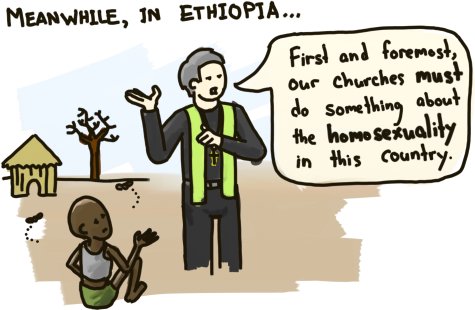 MEANWHILE, IN ETHIOPIA...
First and foremost,
our churches must
do something about
the homosexuality
in this country.